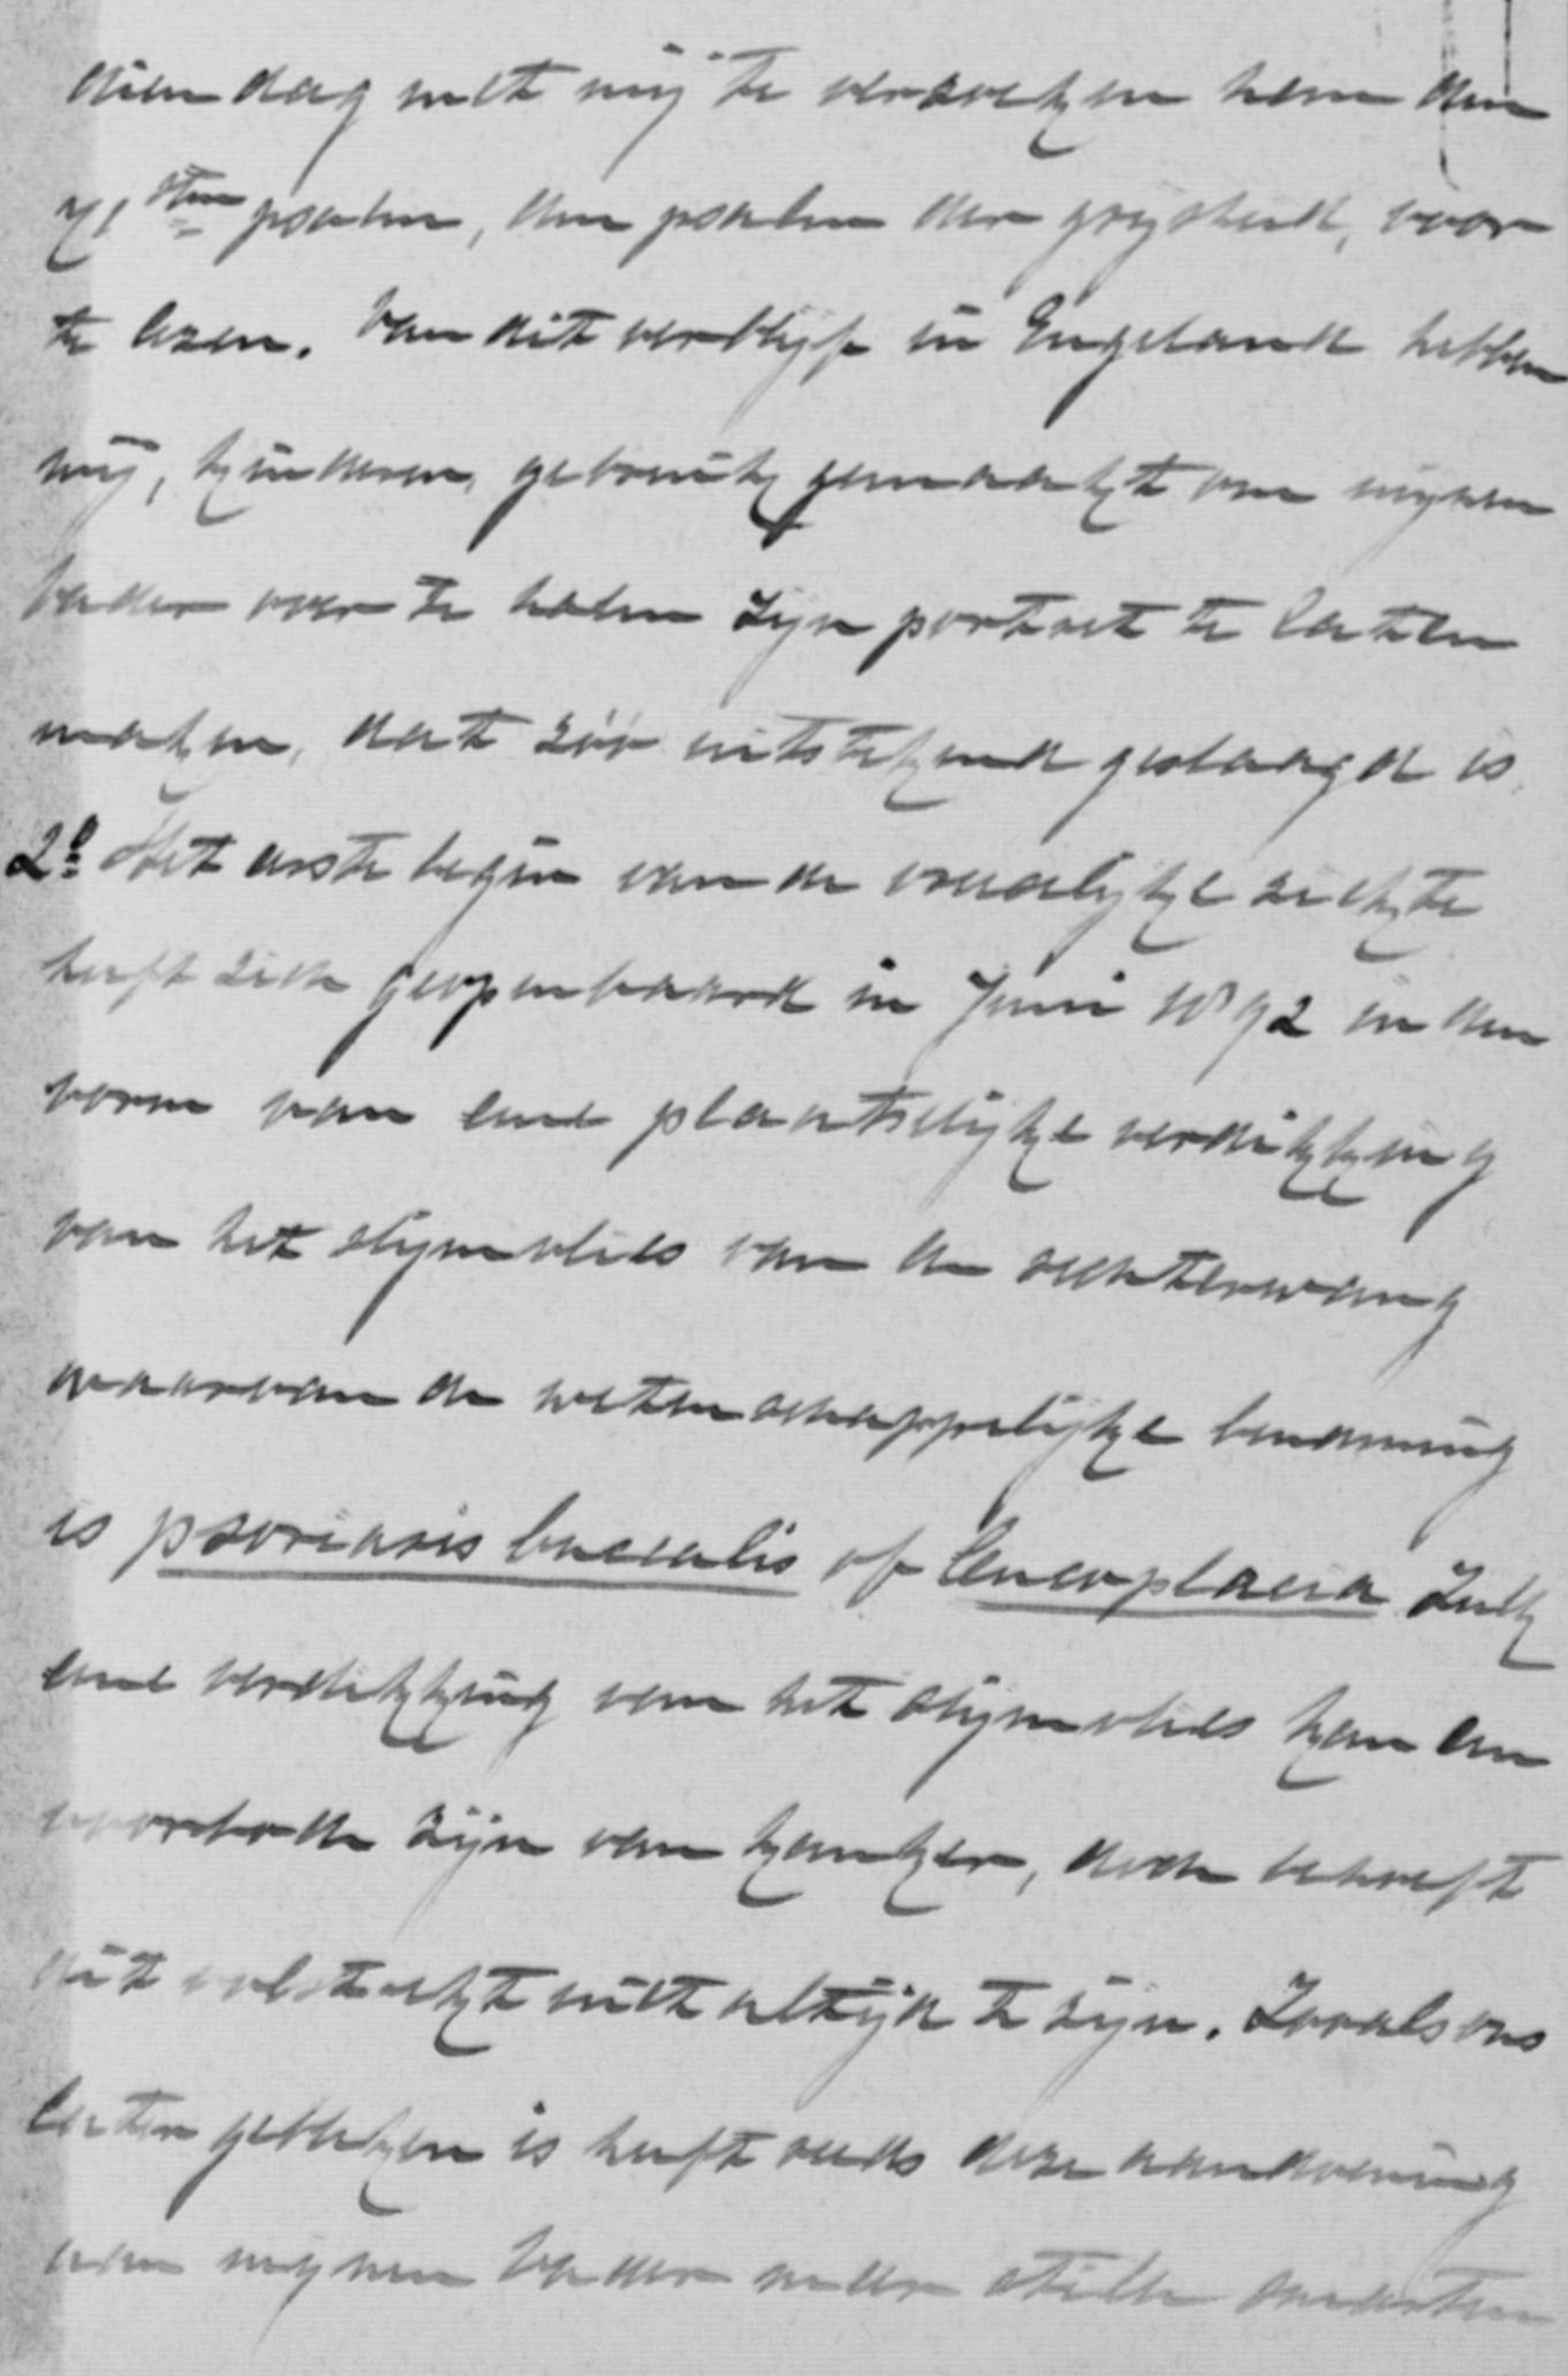 dien dag met mij te verzoeken hem den
71sten psalm, den psalm der grijsheid, voor
te lezen. Van dit verblijf in Engeland hebben
wij, kinderen, gebruik gemaakt om mijnen
vader over te halen zijn portret te laten
maken, dat zóó uitstekend geslaagd is.
2o Het eerste begin van de vreeselijke ziekte
heeft zich geopenbaard in Juni 1892 in den
vorm van eene plaatselijke verdikking
van het slijmvlies van de rechterwang
waarvan de wetenschappelijke benaming
is psoriasis buccalis of leucoplacia Zulk
eene verdikking van het slijmvlies kan een
voorbode zijn van kanker, doch behoeft
dit volstrekt niet altijd te zijn. Zooals ons
later gebleken is heeft reeds deze aandoening
aan mijnen vader meer stille smarten